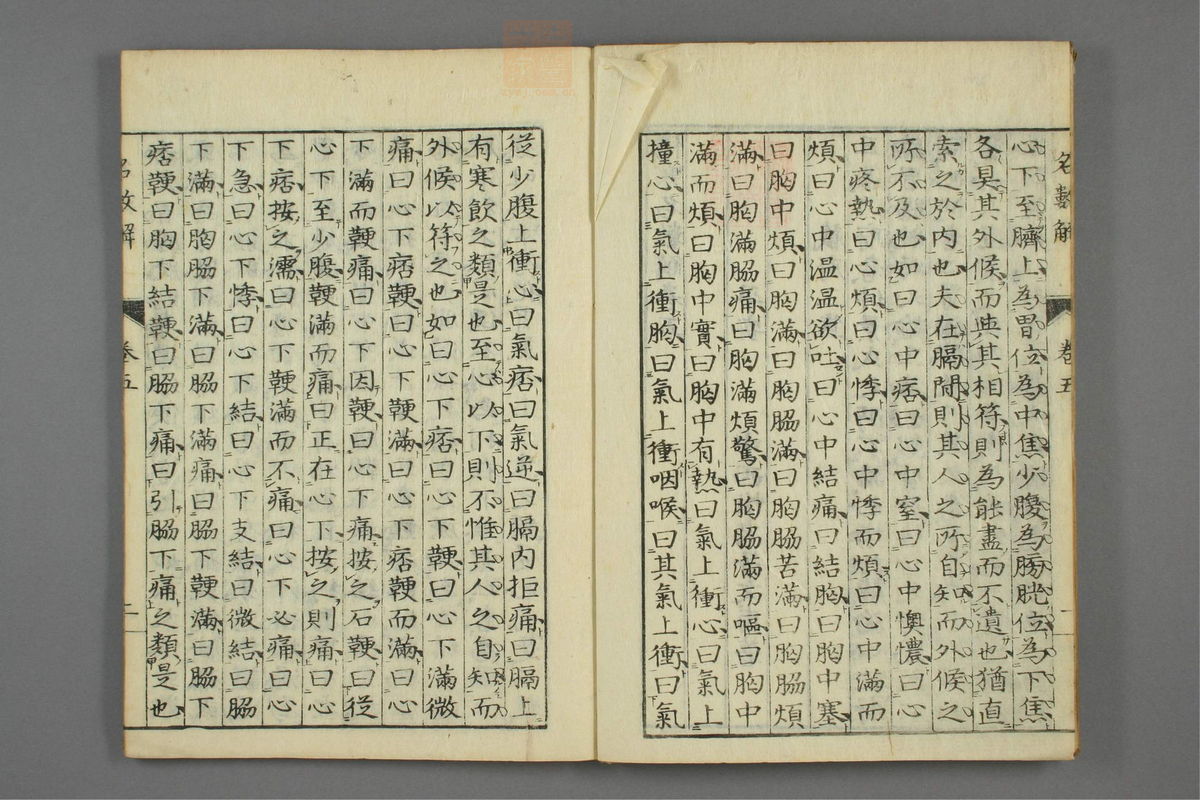 名數解 卷五
心下至臍上為胃位為中焦少腹為膀胱位為下焦
各異其外候而與其相符則為能盡而不遺也猶直
索之於內也夫在膈間則其人之所自知而外候之
所不及也如曰心中痞曰心中窒曰心中懊憹曰心
中疼熱曰心煩曰心悸曰心中悸而煩曰心中滿而
煩曰心中温温欲吐曰心中結痛曰結胸曰胸中塞
曰胸中煩曰胸滿曰胸脇滿曰胸脇苦滿曰胸脇煩
滿曰胸滿脇痛曰胸滿煩驚曰胸脇滿而嘔曰胸中
滿而煩曰胸中實曰胸中有熱曰氣上衝心曰氣上
撞心曰氣上衝胸曰氣上衝咽喉曰其氣上衝曰氣
從少腹上衝心曰氣痞曰氣逆曰膈內拒痛曰膈上
有寒飲之類是也至心以下則不惟其人之自知而
外候以符之也如曰心下痞曰心下鞕曰心下滿微
痛曰心下痞鞕曰心下鞕滿曰心下痞鞕而滿曰心
下滿而鞕痛曰心下因鞕曰心下痛按之石鞕曰從
心下至少腹鞕滿而痛曰正在心下按之則痛曰心
下痞按之濡曰心下鞕滿而不痛曰心下必痛曰心
下急曰心下悸曰心下結曰心下支結曰微結曰脇
下滿曰胸脇下滿曰脇下滿痛曰脇下鞕滿曰脇下
痞鞕曰胸下結鞕曰脇下痛曰引脇下痛之類是也
名數解 卷五 二